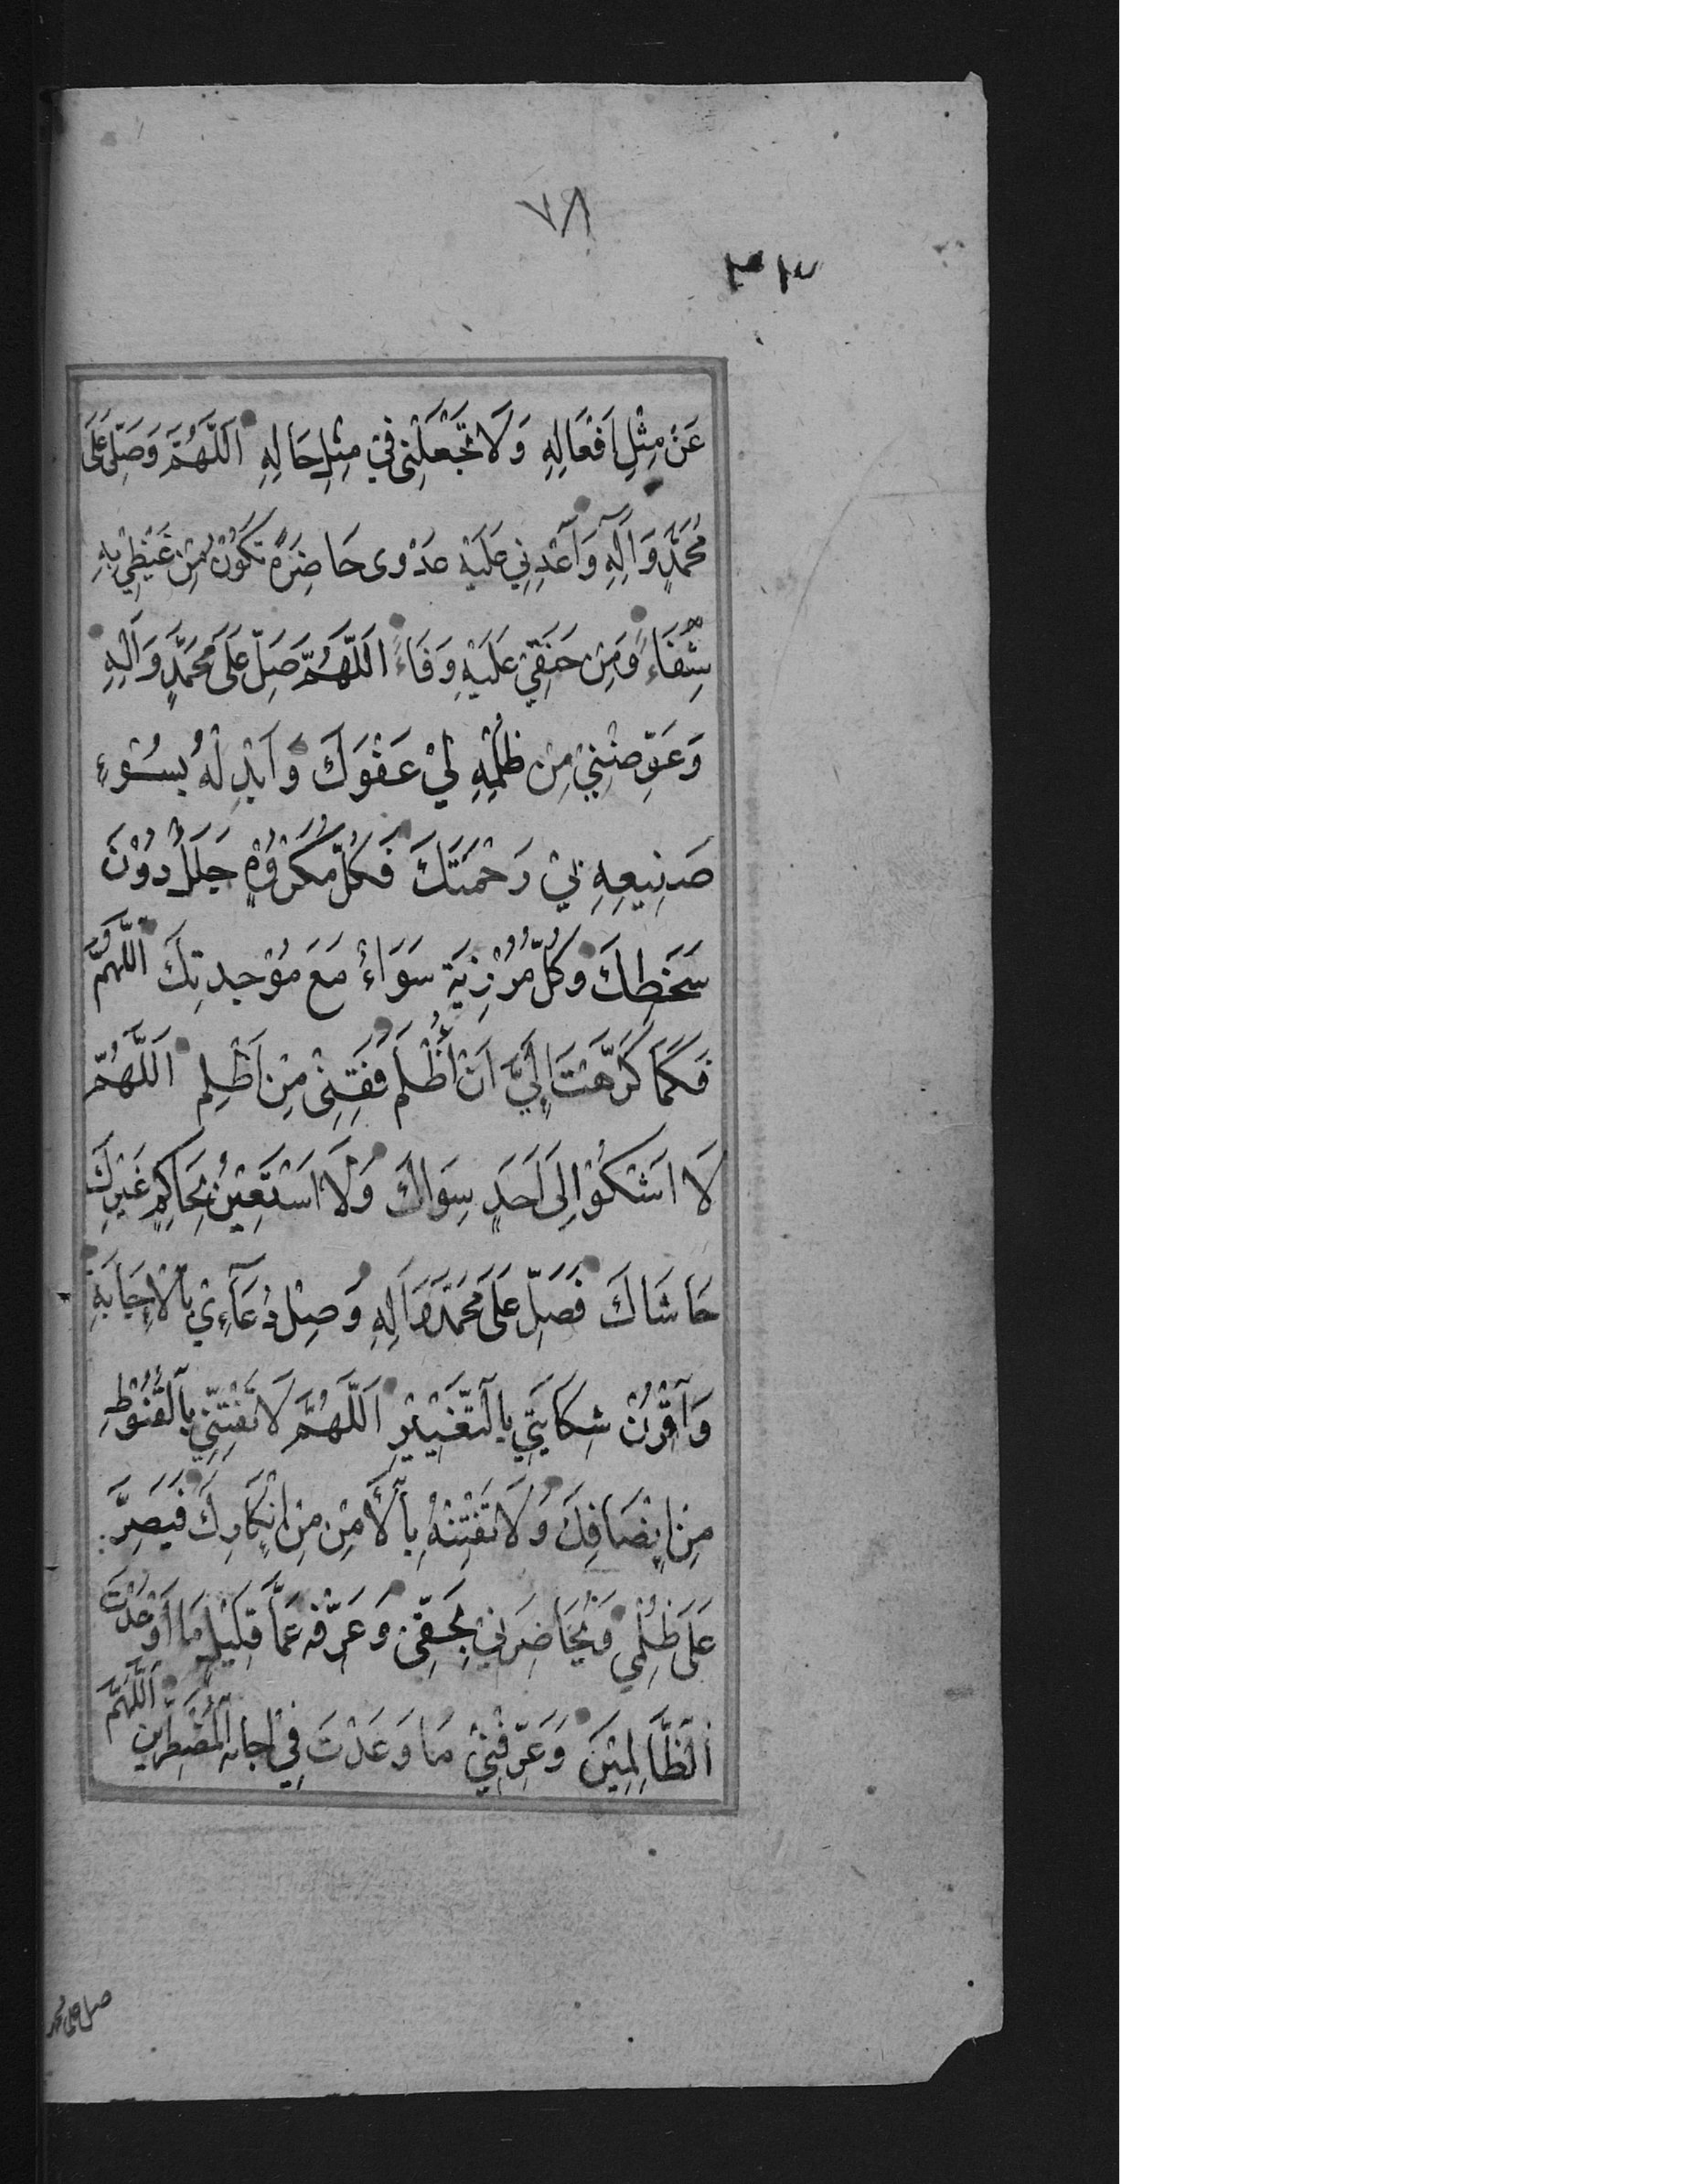 ٧٨
٣٣
عَنْ مِثْلِ اَفْعَالِهِ وَلَا تَجْعَلْنِى فِيْ مِثْلِ حَالِهِ اَللّٰهُمَّ وَصَلِّ عَلَى
مُحَمَّدٍ وَاٰلِهِ وَاَعْدِنِي عَلَيْهِ عَدْوى حَاضِرَةً تَكُوْنُ مِنْ غَيْظِيْ بِهِ
شِفَاءً وَمِنْ حَنَقِيْ عَلَيْهِ وَفَاءً اَللّٰهُمَّ صَلِّ عَلَى مُحَمَّدٍ وَاٰلِهِ
وَعَوِّضْنِيْ مِنْ ظُلْمِهِ لِيْ عَفْوَكَ وَاَبْدِلْهُ بِسُوْءِ
صَنِيعِهِ بِيْ رَحْمَتَكَ فَكُلُّ مَكْرُوْهٍ جَلَلٌ دُوْنَ
سَخَطِكَ وَكُلُّ مُرْزِيَةٍ سَوَاءٌ مَعَ مَوْجِدتِكَ اَللّٰهُمَّ
فَكَمَا كَرَّهْتَ اِلَيَّ اَنْ اُظْلَمَ فَقِنِىْ مِنْ اَظْلِم اَللّٰهُمَّ
لَا اَشْكُوْ اِلَى اَحَدٍ سِوَاكَ وَلَا اَسْتَعِيْنُ بِحَاكِمٍ غَيْرِكَ
حَاشَاكَ فَصَلِّ عَلَى مُحَمَّدٍ وَاٰلِهِ وَصِلْ دُعَآءِيْ بِالْاِجَابَةِ
وَاَقْرِنْ شِكَايَتِيْ بِالتَّغْيِيْرِ اَللّٰهُمَّ لَا تَفْتِنِّيْ بِالْقُنُوْطِ
مِنْ اِنْصَافِكَ وَلَا تَفْتِنْهُ بِالْاَمْنِ مِنْ اِنْكَارِكَ فَيُصِرَّ
عَلَى ظُلْمِيْ وَيُحَاضِرَنِيْ بِحَقِّىْ وَعَرِّفْهُ عَمَّا قَلِيْلٍ مَا اَوْعَدْتَ
اَلظَّالِمِيْنَ وَعَرِّفْنِيْ مَا وَعَدْتَ فِيْ اِجَابَةِ الْمُضْطَرِّيْنَ اَللّٰهُمَّ
صل على محمد